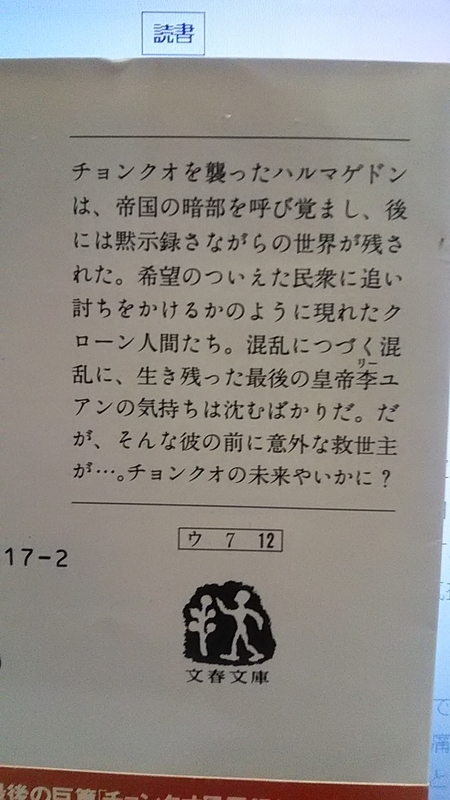 読書
チョンクオを襲ったハルマゲドン
は、帝国の暗部を呼び覚まし、後
には黙示録さながらの世界が残さ
れた。希望のついえた民衆に追い
討ちをかけるかのように現れたク
ローン人間たち。混乱につづく混
乱に、生き残った最後の皇帝李ユ
リー
アンの気持ちは沈むばかりだ。だ
が、そんな彼の前に意外な救世主
が…。チョンクオの未来やいかに？
ウ 7 12
17-2
文春文庫
最後の巨篇「チョンクオ